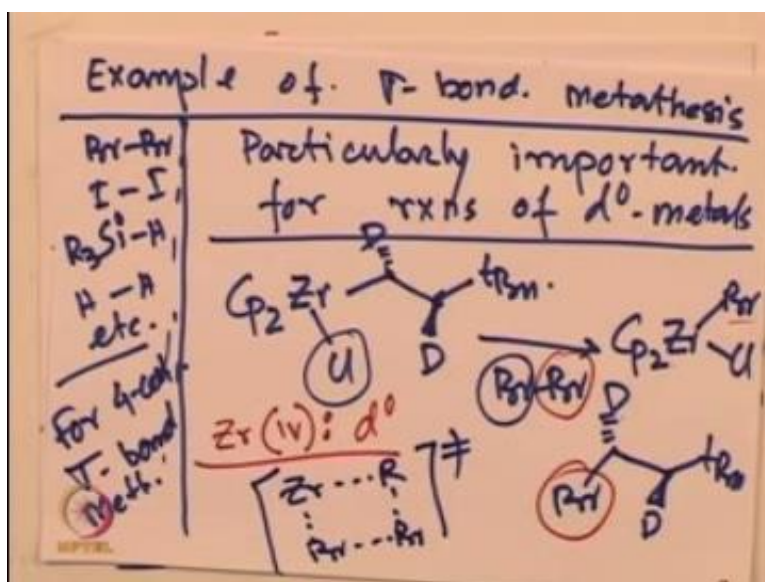 Example of σ-bond. metathesis
Br-Br,
I-I,
R₃Si-H,
H-H
etc.
For 4-cent.
σ-bond
Mett.
Particularly important.
for rxns of d⁰-metals
D
Cp₂Zr
tBu.
Cl
D
Br-Br
Cp₂Zr
Br
Cl
Zr(IV): d⁰
[Zr---R
Br---Br]‡
D
Br
tBu
D
NPTEL